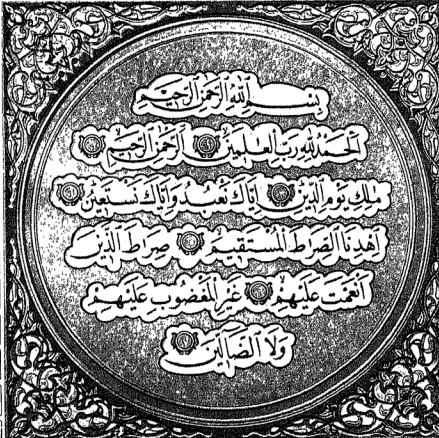 بسم الله الرحمن الرحيم
الحمد لله رب العلمين الرحمن الرحيم
ملك يوم الدين إياك نعبد وإياك نستعين
اهدنا الصراط المستقيم صراط الذين
أنعمت عليهم غير المغضوب عليهم
ولا الضالين